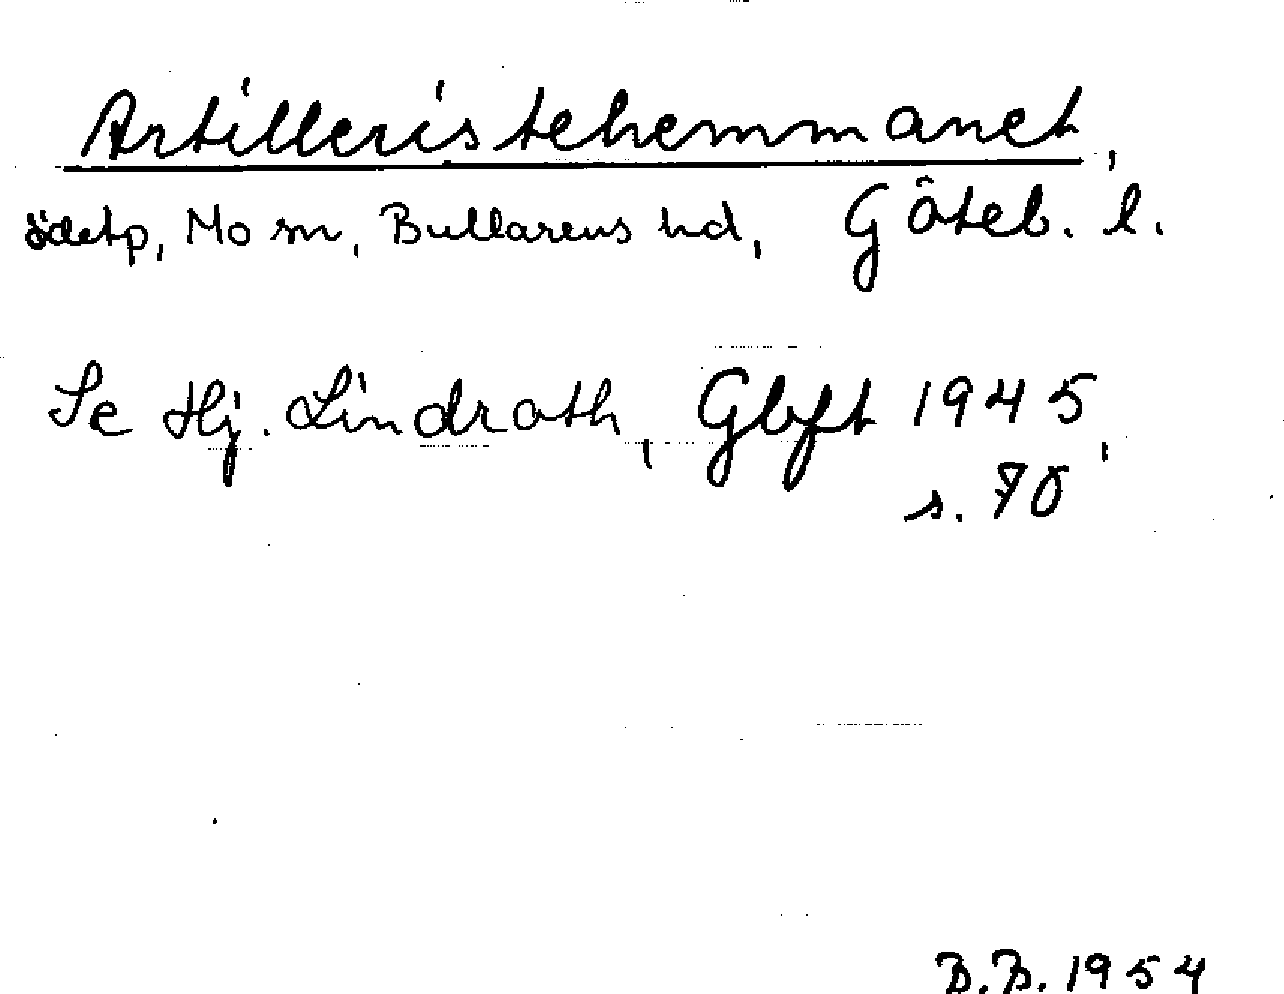 Artilleristehemmanet,
ödetp, Mo sn, Bullarens hd, Göteb. l.
Se Hj. Lindroth, Gbgft 1945,
s. 70
B.B. 1954